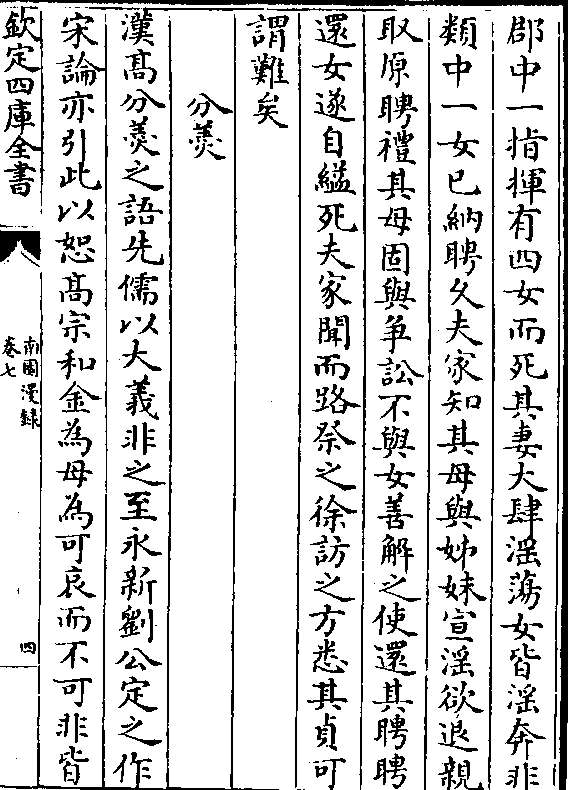 郡中一指揮有四女而死其妻大肆滛蕩女皆滛奔非
類中一女已納聘久夫家知其母與姊妹宣滛欲退親
取原聘禮其母固與争訟不與女善解之使還其聘聘
還女遂自縊死夫家聞而路祭之徐訪之方悉其貞可
謂難矣
分羮
漢髙分羮之語先儒以大義非之至永新劉公定之作
宋論亦引此以恕髙宗和金為母為可哀而不可非皆
欽定四庫全書
南園漫録
卷七
四